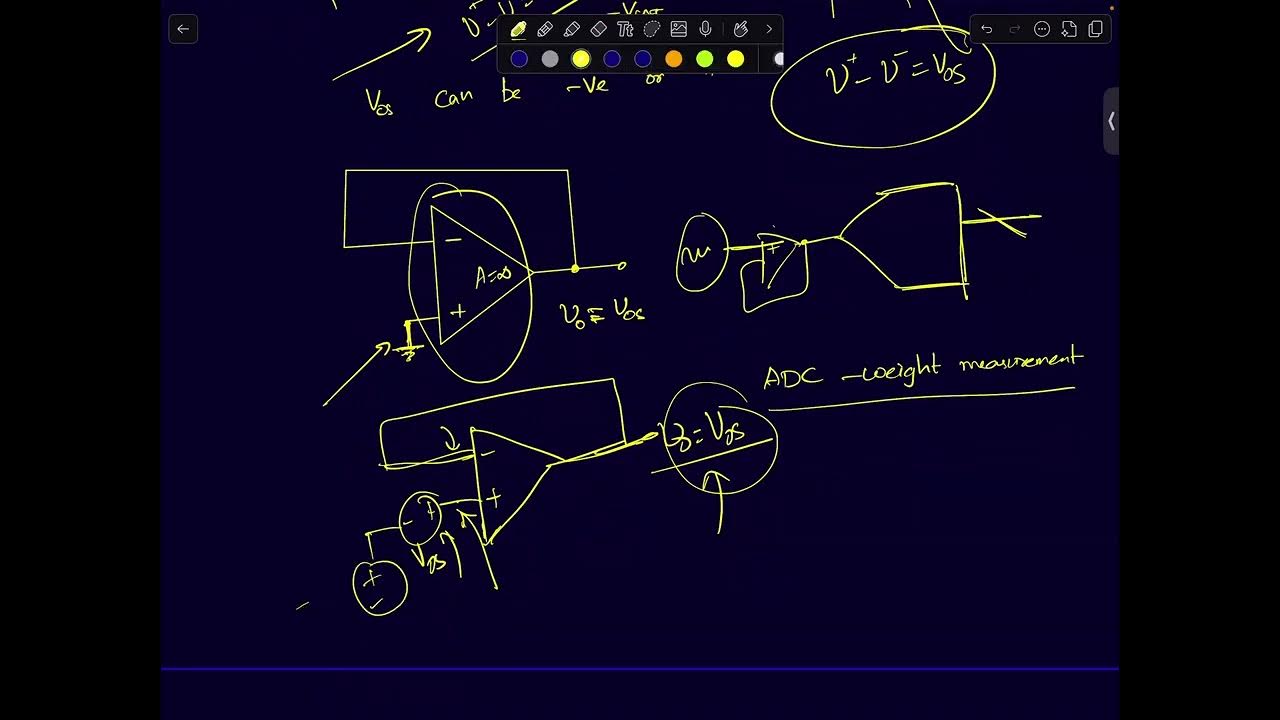 Vos can be -ve or
v⁺ - v⁻ = Vos
−
A=∞
+
Vo = Vos
+
ADC - weight measurement
−
+
Vo = Vos
- +
Vos
+
-